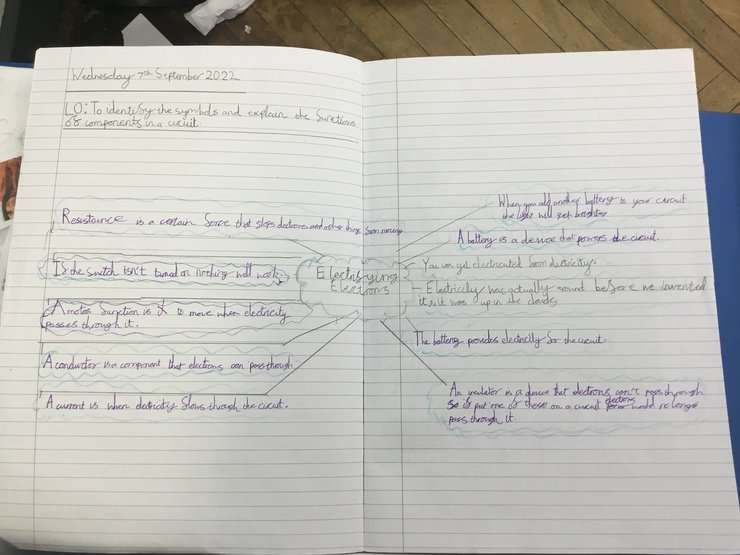 Wednesday 7th September 2022
LO: To identify the symbols and explain the functions
of components in a circuit.
Resistance is a certain force that stops electrons and other things from moving
If the switch isn't turned on nothing will work.
A motors function is to move when electricity
passes through it.
A conductor is a component that electrons can pass through
A current is when electricity flows through the circuit.
Electrifying
Electrons
When you add another battery to your circuit
the light will get brighter
A battery is a device that powers the circuit.
You can get electricuted from electricity.
- Electricity was actually around before we invented
it, it was up in the clouds,
The battery provides electricity for the circuit.
An insulator is a device that electrons can't pass through
So if put one of these on a circuit electrons would no longer
pass through it.